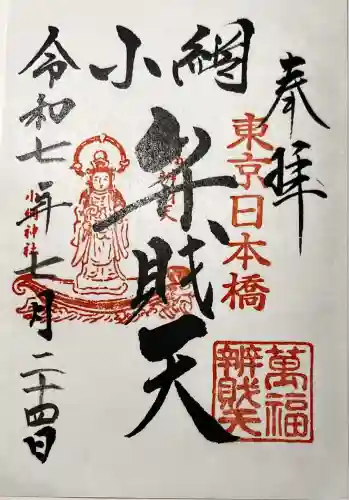 奉拝
東京日本橋
小網
弁財天
萬福
辨財天
小網神社
令和七年七月二十四日